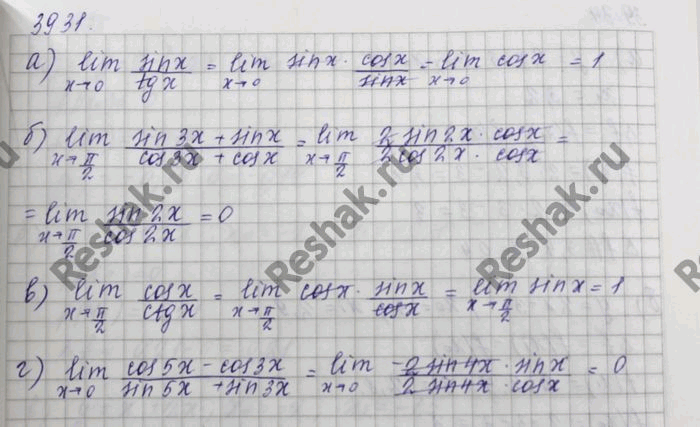 3931.
а) lim x→0 sinx/tgx = lim x→0 sinx · cosx/sinx = lim x→0 cosx = 1
б) lim x→π/2 (sin3x + sinx)/(cos3x + cosx) = lim x→π/2 (2 sin2x · cosx)/(2cos2x · cosx) =
= lim x→π/2 sin2x/cos2x = 0
в) lim x→π/2 cosx/ctgx = lim x→π/2 cosx · sinx/cosx = lim x→π/2 sinx = 1
г) lim x→0 (cos5x - cos3x)/(sin5x + sin3x) = lim x→0 (-2 sin4x · sinx)/(2 sin4x · cosx) = 0
Reshak.ru
Reshak.ru
Reshak.ru